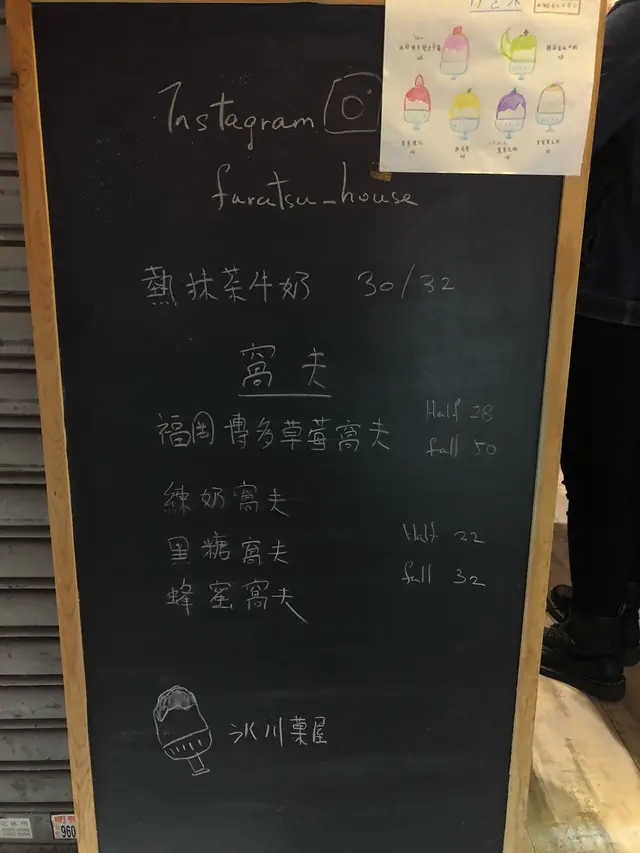 Instagram
furatsu_house
熱抹茶牛奶 30/32
窩夫
福岡博多草莓窩夫 Half 28
full 50
練奶窩夫
黑糖窩夫 Half 22
full 32
蜂蜜窩夫
氷川菓屋
960